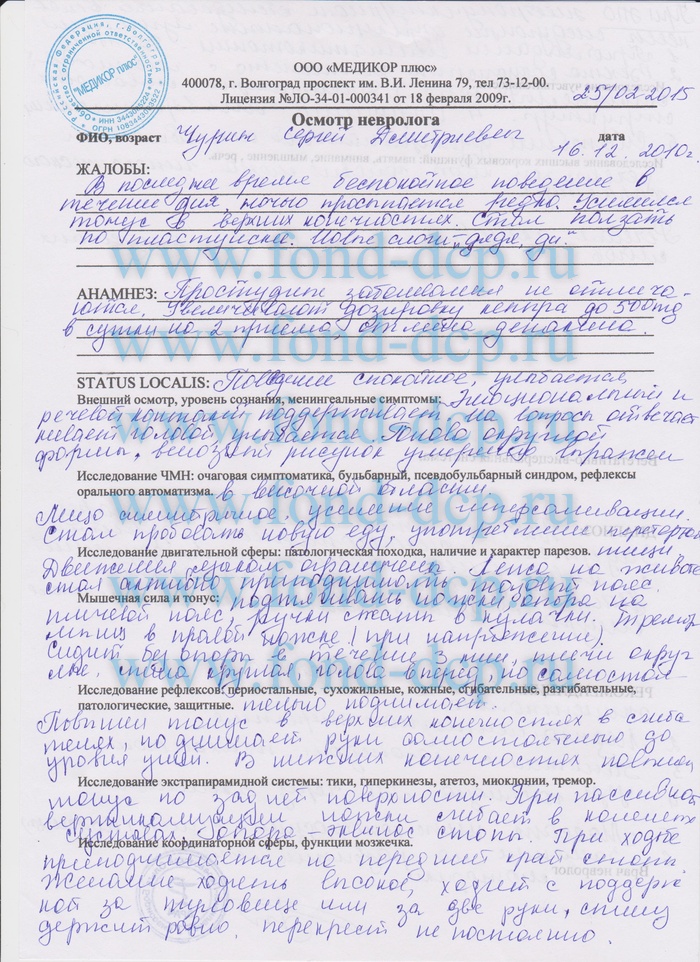 "МЕДИКОР плюс"
ООО «МЕДИКОР плюс»
400078, г. Волгоград проспект им. В.И. Ленина 79, тел 73-12-00.
Лицензия №ЛО-34-01-000341 от 18 февраля 2009г.
25/02-2015
Осмотр невролога
ФИО, возраст Чурин Сергей Дмитриевич дата
16.12 2010г.
ЖАЛОБЫ:
В последнее время беспокойное поведение в
течение дня, ночью просыпается редко. Усилился
тонус в верхних конечностях. Стал ползать
по пластунски. Новые слоги „дядя, ди."
www.fond-dcp.ru
АНАМНЕЗ: Простудные заболевания не отмеча-
ются. Увеличивают дозировку кеппра до 500мг
в сутки на 2 приема, отмена депакина.
www.fond-dcp.ru
STATUS LOCALIS: Поведение спокойное, улыбается,
Внешний осмотр, уровень сознания, менингеальные симптомы: Эмоциональный и
речевой контакт поддерживает, на вопросы отвечает
кивает головой, улыбается. Голова округлой
формы, венозный рисунок умеренно выражен
www.fond-dcp.ru
Исследование ЧМН: очаговая симптоматика, бульбарный, псевдобульбарный синдром, рефлексы
орального автоматизма. в височной области.
www.fond-dcp.ru
Лицо симметричное. усиление гиперсаливации.
Стал пробовать новую еду, употребление перетертой
Исследование двигательной сферы: патологическая походка, наличие и характер парезов. пищи
Движения языком ограничены. Лежа на животе
стал активно приподнимать тазовый пояс.
www.fond-dcp.ru
Мышечная сила и тонус: подтягивать ножки, опора на
плечевой пояс, ручки сжаты в кулачки. Тремор
мышц в правой ножке (при напряжении).
Сидит без опоры в течение 3 мин, плечи округ-
лые, спина круглая, голова вперед, но самостоя-
www.fond-dcp.ru
Исследование рефлексов: периостальные, сухожильные, кожные, сгибательные, разгибательные,
патологические, защитные. тельно поднимает.
Повышен тонус в верхних конечностях в сгиба-
телях, поднимает руки самостоятельно до
уровня ушей. В нижних конечностях повышен
Исследование экстрапирамидной системы: тики, гиперкинезы, атетоз, миоклонии, тремор.
тонус по задней поверхности. При пассивной
вертикализации ножки сгибает в коленных
суставах. Опора - эквинус стопы. При ходьбе
Исследование координаторной сферы, функции мозжечка.
приподнимается на передний край стопы.
Желание ходить высокое, ходит с поддерж-
кой за туловище или за две руки, спину
держит ровно, перекрест не постоянно.